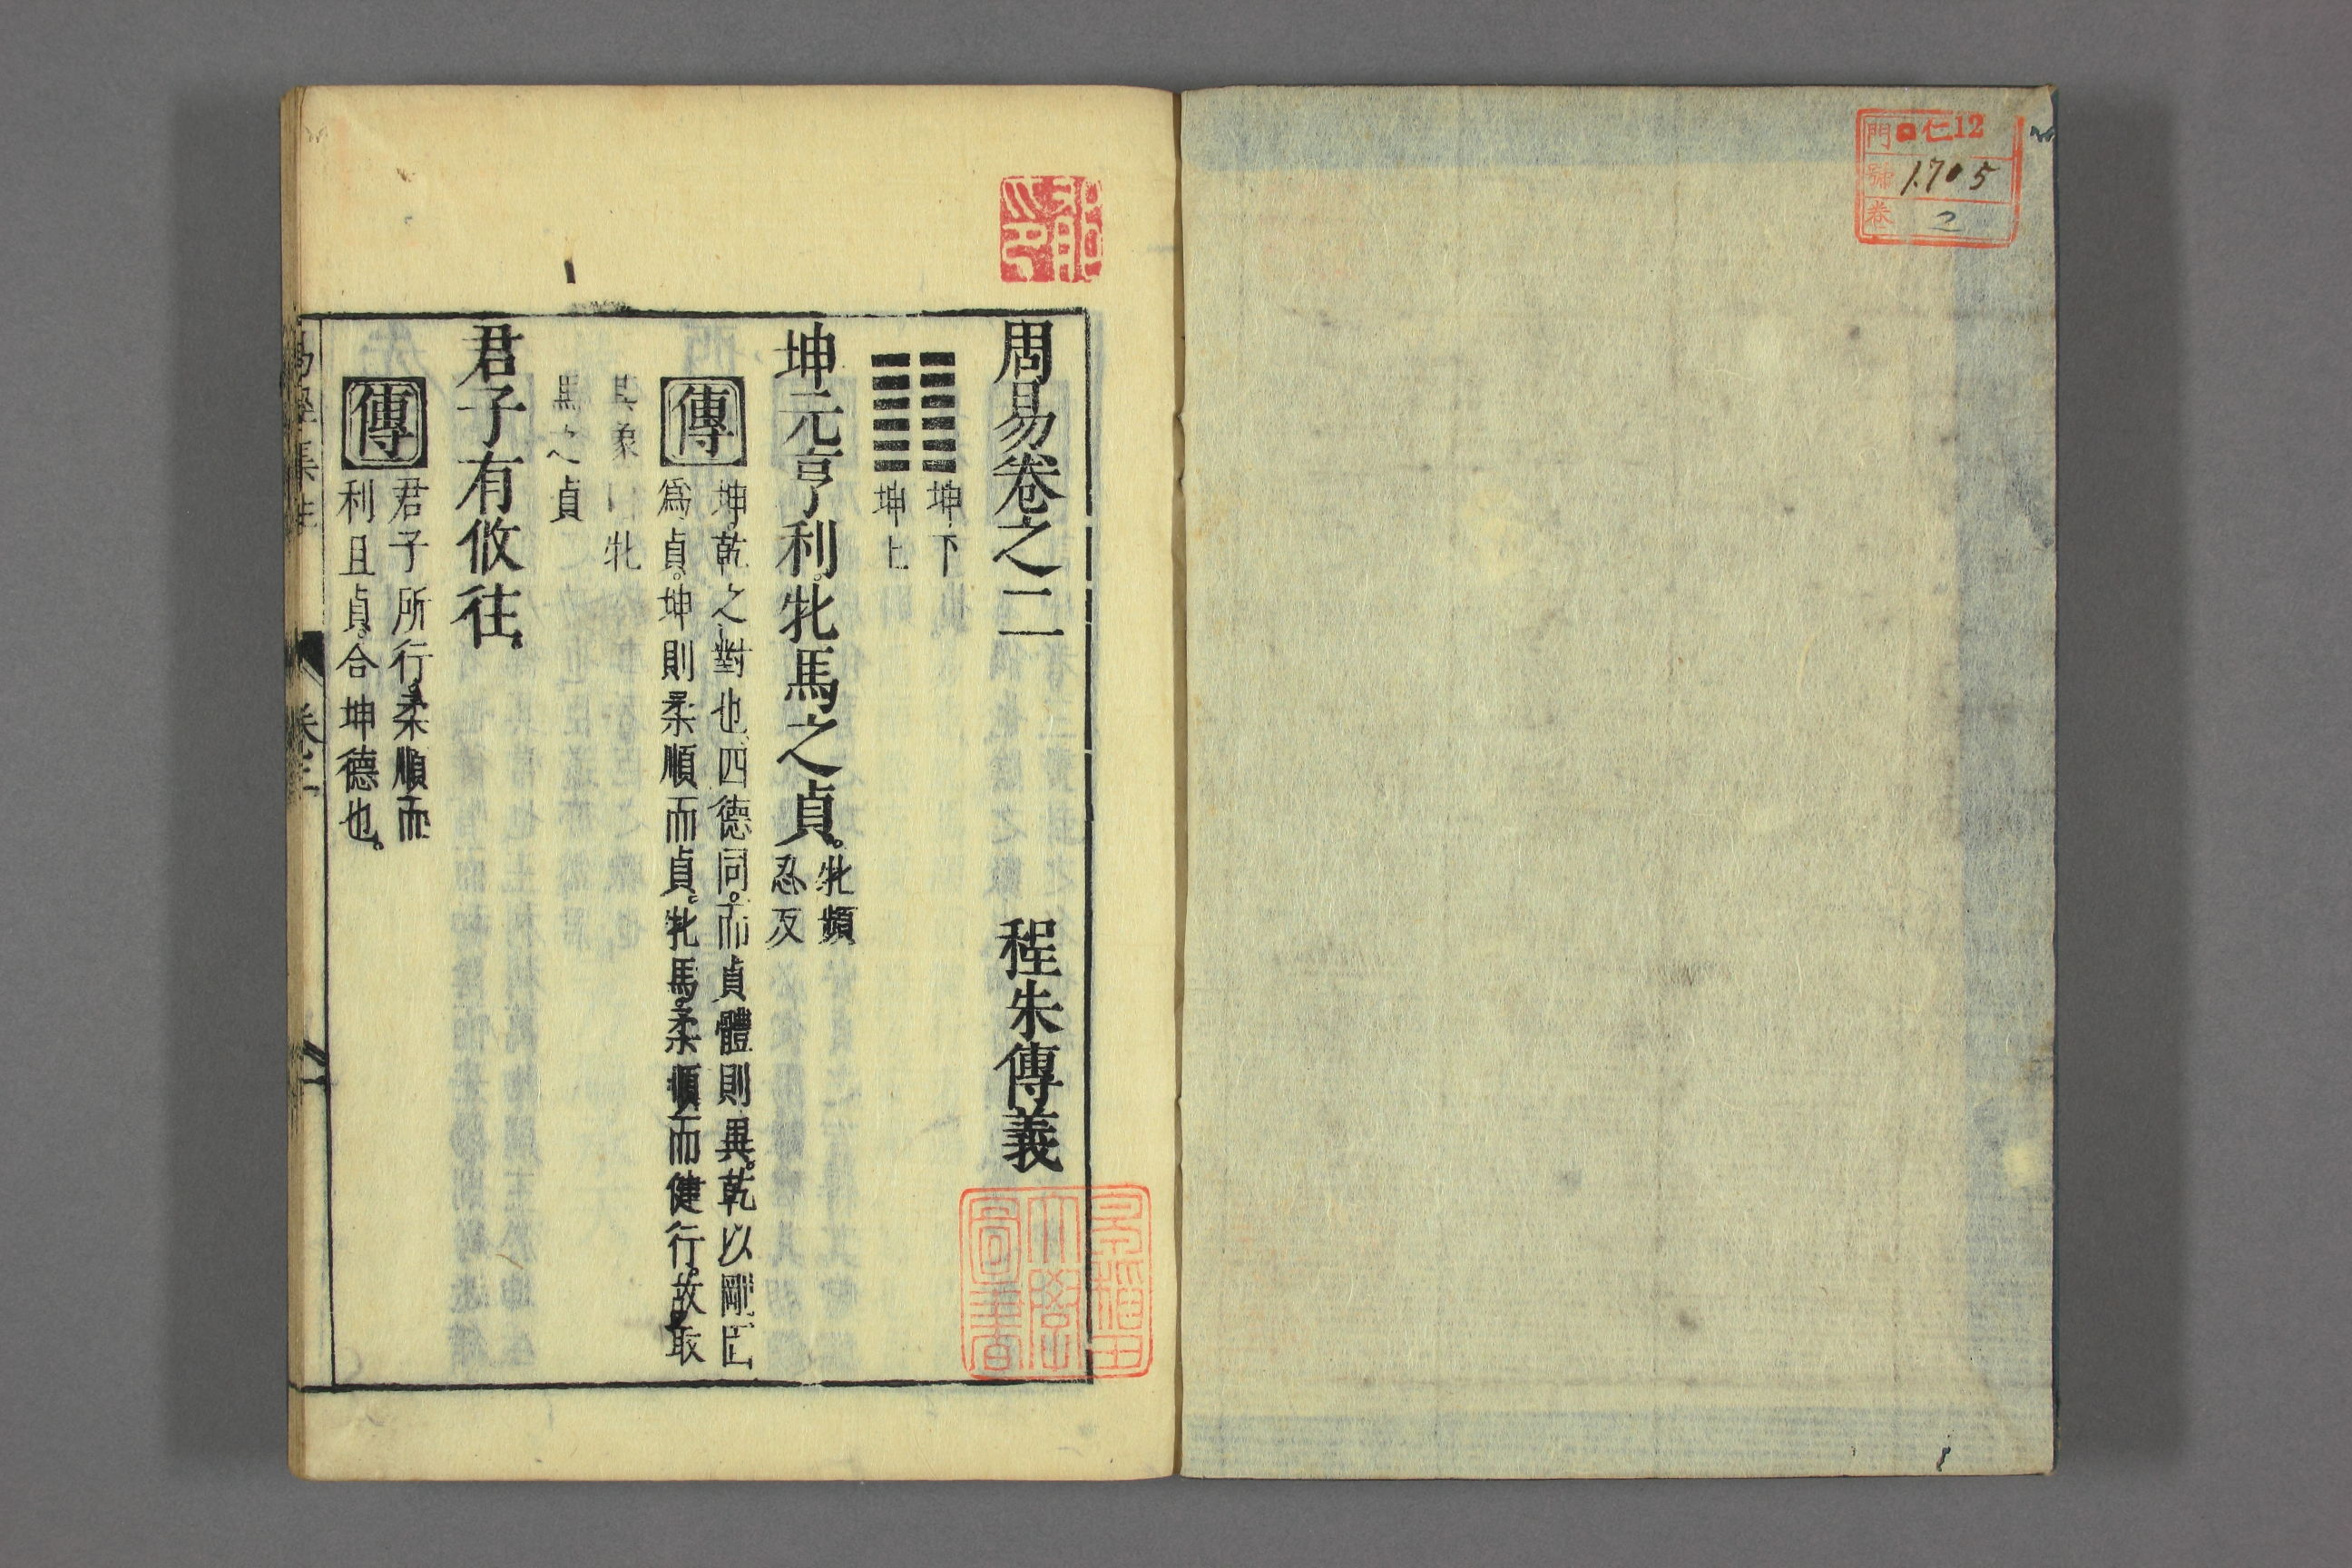 門 ロ仁12
號 1705
卷 2
周易卷之二 程朱傳義
坤下
坤上
坤元亨利。牝馬之貞。牝頻
忍反
傳 坤。乾之對也。四德同。而貞體則異。乾以剛固
爲貞。坤則柔順而貞。牝馬柔順而健行。故取
其象曰牝
馬之貞
君子有攸往。
傳 君子所行。柔順而
利且貞。合坤德也。
易經集註 卷二 一
早稲田
大學
圖書